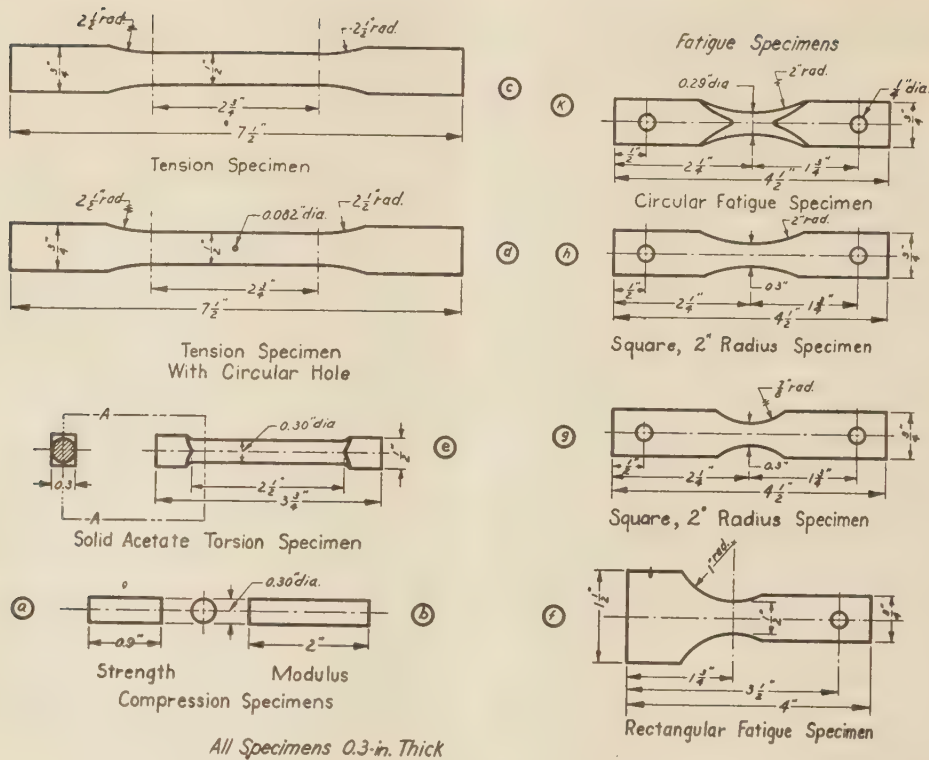 2½" rad.
2½" rad.
¾"
½"
2¾"
7½"
Tension Specimen
c
2½" rad.
0.082" dia.
2½" rad.
¾"
½"
2¾"
7½"
d
Tension Specimen
With Circular Hole
A
0.30" dia
½"
e
0.3
2½"
3¾"
A
Solid Acetate Torsion Specimen
a
0.30" dia.
b
0.9"
2"
Strength
Modulus
Compression Specimens
All Specimens 0.3-in. Thick
Fatigue Specimens
k
0.29" dia
2" rad.
¼" dia.
¾"
½"
2¼"
1¾"
4½"
Circular Fatigue Specimen
h
2" rad.
¾"
½"
0.3"
2¼"
1¾"
4½"
Square, 2" Radius Specimen
g
⅞" rad.
¾"
½"
0.3"
2¼"
1¾"
4½"
Square, 2" Radius Specimen
f
1" rad.
1½"
½"
¾"
1¾"
3½"
4"
Rectangular Fatigue Specimen